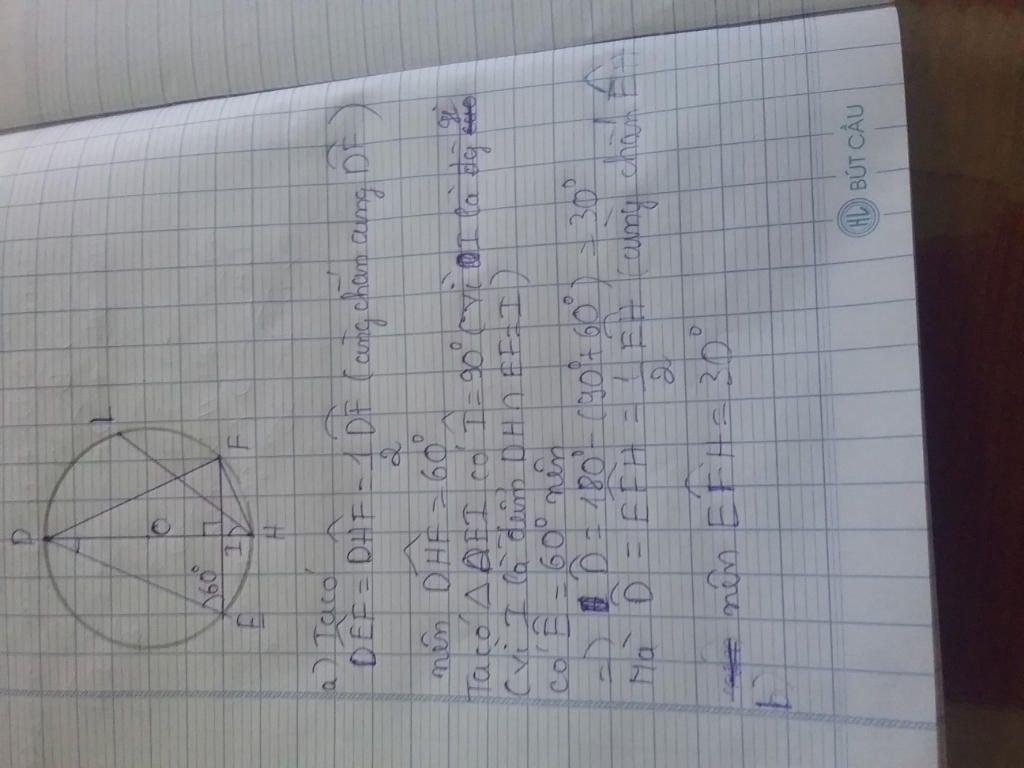 D
L
O
60°
I
E
F
H
a) Ta có
DEF = DHF = 1/2 DF (cùng chắn cung DF)
nên DHF = 60°
Ta có △DEI có I = 90° (vì I là
(vì I là điểm DH ∩ EF = I)
có E = 60° nên
=> D = 180° - (90° + 60°) = 30°
Mà D = EFH = 1/2 EH (cùng chắn EH
nên EFH = 30°
b)
HL BÚT CÂU